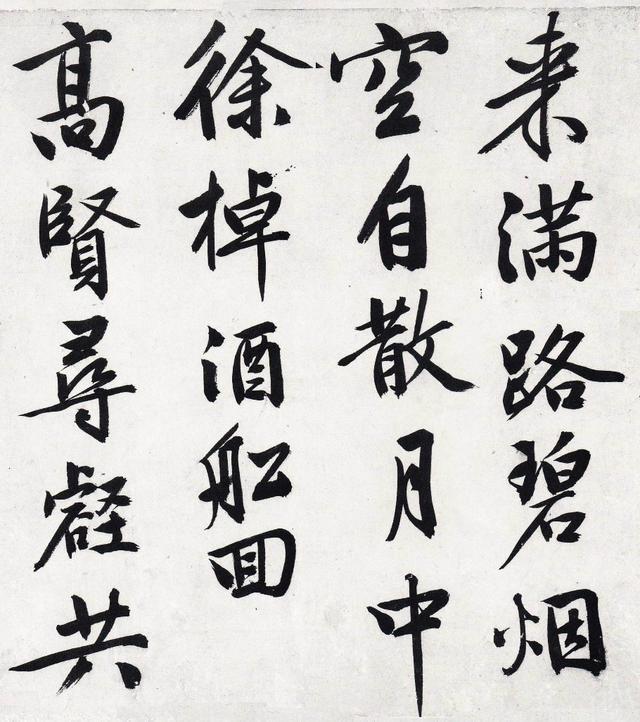 来满路碧烟
空自散月中
徐棹酒舩回
髙賢尋壑共